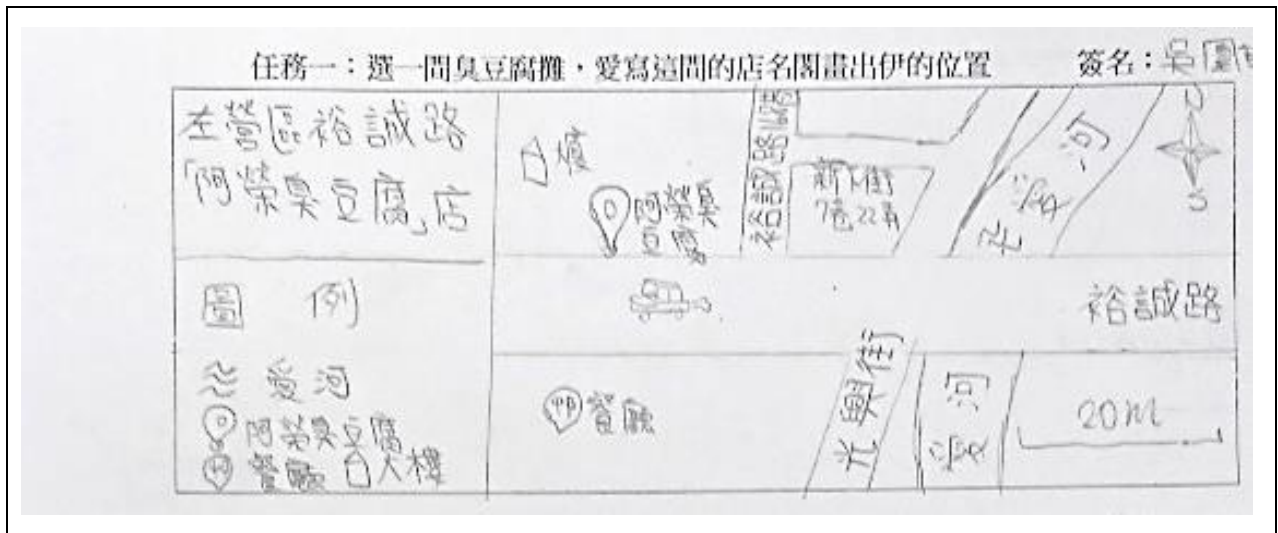 任務一：選一間臭豆腐攤，愛寫這間的店名閣畫出伊的位置
簽名：吳
左營區裕誠路
「阿榮臭豆腐」店
圖 例
愛河
阿榮臭豆腐
餐廳 大樓
樓
阿榮臭
豆腐
裕誠路
新下街
7巷22弄
愛河
N
S
裕誠路
餐廳
光興街
愛河
20m